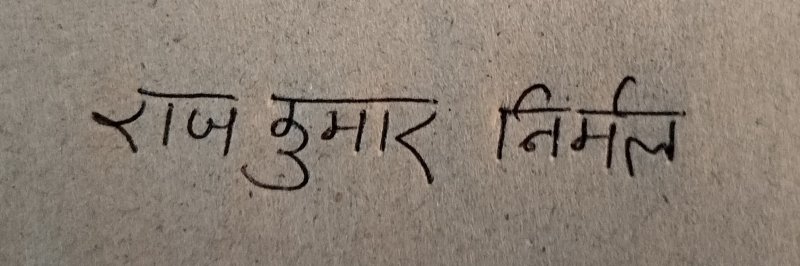 राज कुमार निर्मल